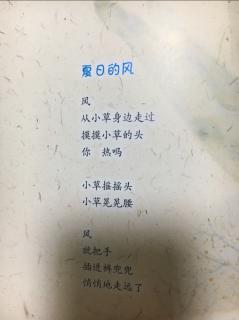 夏日的风
风
从小草身边走过
摸摸小草的头
你 热吗
小草摇摇头
小草晃晃腰
风
就把手
插进裤兜兜
悄悄地走远了